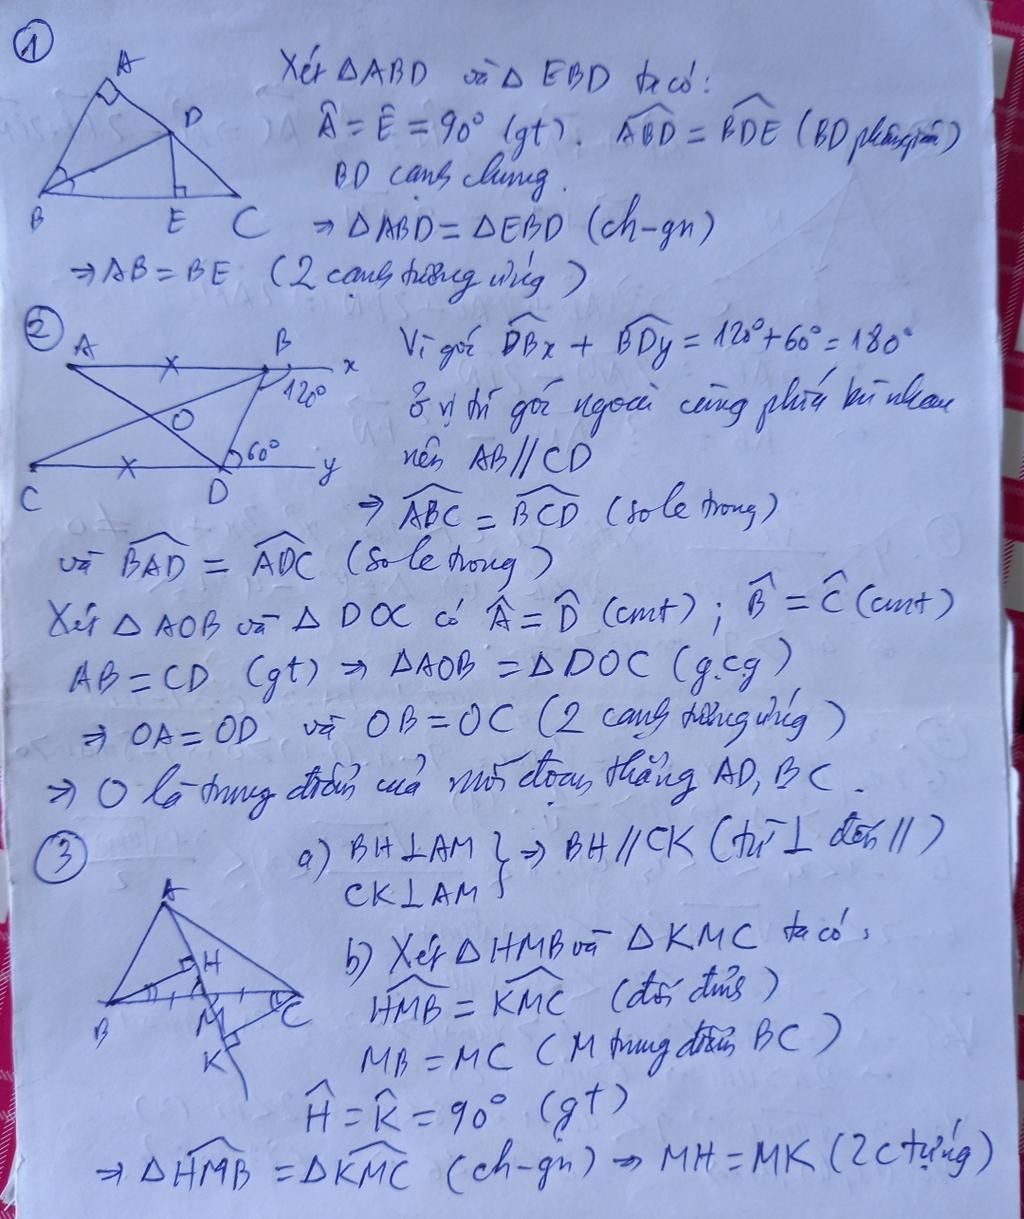 ①
A
D
B
E
C
Xét △ABD và △EBD ta có:
Â = Ê = 90° (gt). \widehat{ABD} = \widehat{BDE} (BD phân giác)
BD cạnh chung.
⇒ △ABD = △EBD (ch-gn)
⇒ AB = BE (2 cạnh tương ứng)
②
A B x
120°
O
60°
C D y
Vì góc \widehat{DBx} + \widehat{BDy} = 120° + 60° = 180°
Ở vị trí góc ngoài cùng phía bù nhau
nên AB // CD
⇒ \widehat{ABC} = \widehat{BCD} (so le trong)
và \widehat{BAD} = \widehat{ADC} (so le trong)
Xét △AOB và △DOC có Â = \widehat{D} (cmt); \widehat{B} = Ĉ (cmt)
AB = CD (gt) ⇒ △AOB = △DOC (g.c.g)
⇒ OA = OD và OB = OC (2 cạnh tương ứng)
⇒ O là trung điểm của mỗi đoạn thẳng AD, BC.
③
A
H
B
M
C
K
a) BH ⊥ AM } ⇒ BH // CK (từ ⊥ đến //)
CK ⊥ AM
b) Xét △HMB và △KMC ta có:
\widehat{HMB} = \widehat{KMC} (đối đỉnh)
MB = MC (M trung điểm BC)
Ĥ = \widehat{K} = 90° (gt)
⇒ △\widehat{HMB} = △\widehat{KMC} (ch-gn) ⇒ MH = MK (2c tứng)